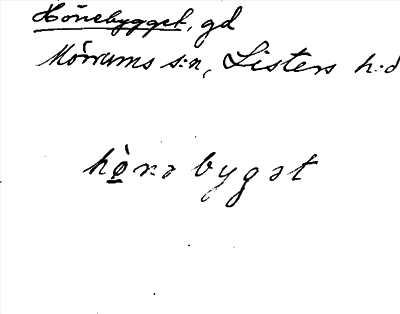 Hönebygget, gd
Mörrums s:n, Listers h:d
hø̀nəbygət